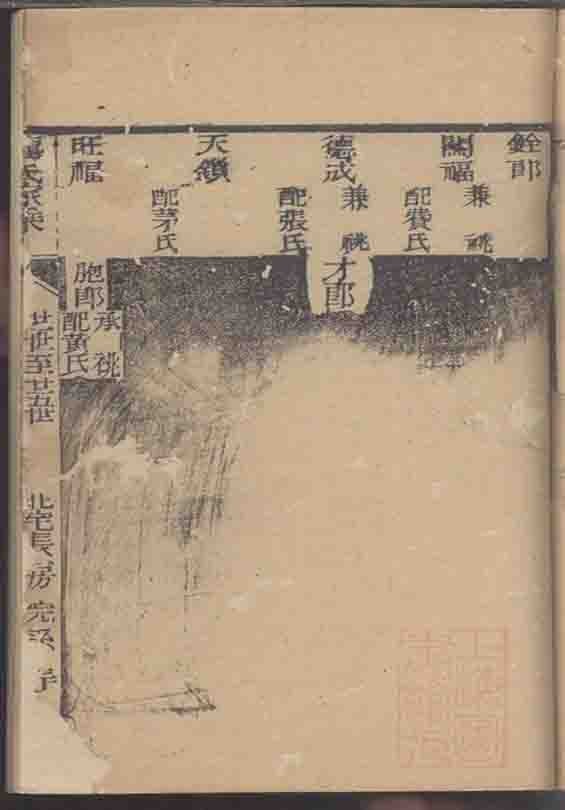 銓郎
關福
兼祧
配費氏
德成
兼祧
配張氏
天鎖
配茅氏
旺福
才郎
胞郎
承祧
配黃氏
氏宗族
廿一世至廿五世
北宅長房完
上海圖